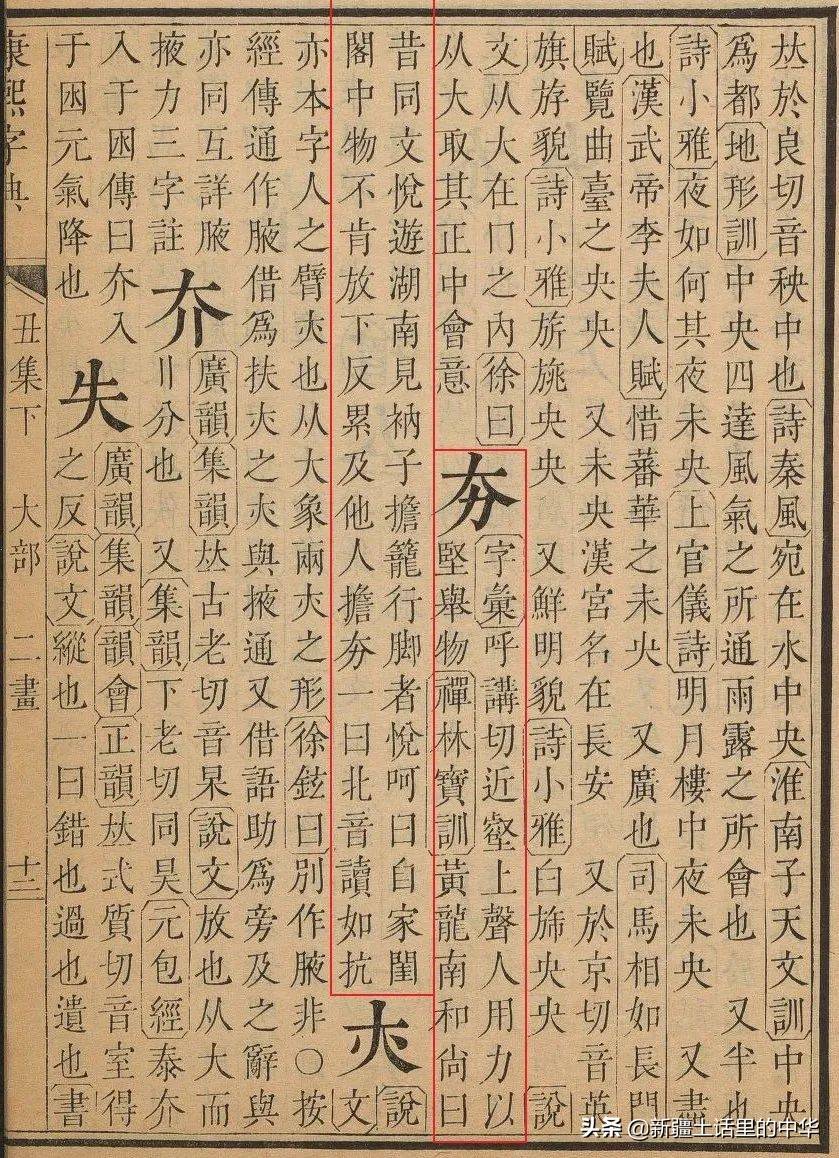 𠀤於良切音秧中也詩秦風宛在水中央淮南子天文訓中央
爲都地形訓中央四達風氣之所通雨露之所會也 又半也
詩小雅夜如何其夜未央上官儀詩明月樓中夜未央 又盡
也漢武帝李夫人賦惜蕃華之未央 又廣也司馬相如長門
賦覽曲臺之央央 又未央漢宮名在長安 又於京切音英
旗斿貌詩小雅旂旐央央 又鮮明貌詩小雅白斾央央 說
文从大在冂之內徐曰
从大取其正中會意
夯
字彙呼講切近壑上聲人用力以
堅舉物禪林寶訓黃龍南和尚曰
昔同文悅遊湖南見衲子擔籠行脚者悅呵曰自家閨
閣中物不肯放下反累及他人擔夯一曰北音讀如抗
說
文
亦本字人之臂也从大象兩之形徐鉉曰別作腋非○按
經傳通作腋借爲扶之與掖通又借語助爲旁及之辭與
亦同互詳腋
掖力三字註
夰
廣韻集韻𠀤古老切音杲說文放也从大而
〢分也 又集韻下老切同昊元包經泰夰
入于囦傳曰夰入
于囦元氣降也
失
廣韻集韻韻會正韻𠀤式質切音室得
之反說文縱也一曰錯也過也遺也書
康熙字典 丑集下 大部 二畫 十三
头条 @新疆土话里的中华